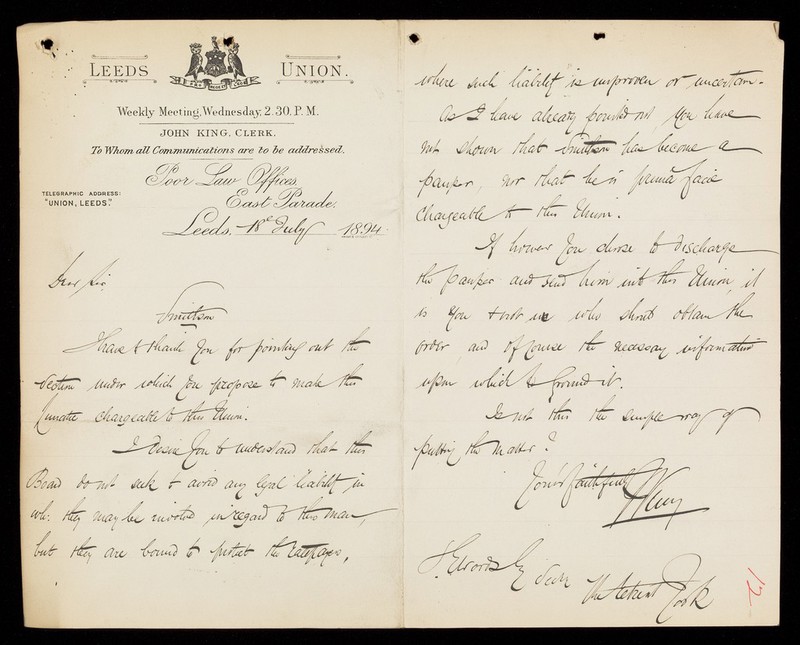 LEEDS UNION.
Weekly Meeting, Wednesday, 2.30. P.M.
JOHN KING. CLERK.
To Whom all Communications are to be addressed.
Poor Law Offices,
TELEGRAPHIC ADDRESS:
"UNION, LEEDS."
East Parade,
Leeds, 18th July 1894
Dear Sir
Smithson
I have to thank you for pointing out the
Section under which you propose to make this
lunatic chargeable to this Union.
I desire you to understand that this
Board do not seek to avoid any legal liability in
wh: they may be involved in regard to this man,
but they are bound to protect the ratepayers,
where such liability is unproven or uncertain.
As I have already pointed out, you have
not shown that Smithson has become a
pauper, nor that he is prima facie
chargeable to this Union.
If however you choose to discharge
the pauper and send him into this Union, it
is you & not us who should obtain the
order, and of course the necessary information
upon which to ground it.
Is not this the simple way of
putting the matter?
Yours faithfully
J King
Esq
The Retreat York
12